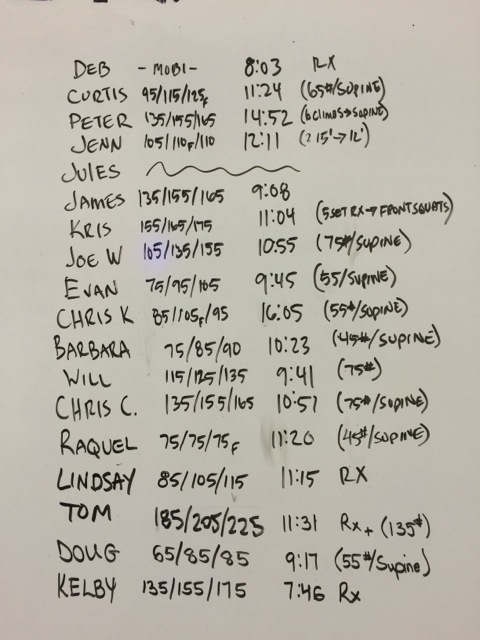 DEB -MOBI- 8:03 RX
CURTIS 95/115/125F 11:24 (65#/SUPINE)
PETER 135/155/165 14:52 (6 CLIMBS→SUPINE)
JENN 105/110F/110 12:11 (? 15'→12')
JULES
JAMES 135/155/165 9:08
KRIS 155/165/175 11:04 (5 SET RX→FRONT SQUATS)
JOE W 105/135/155 10:55 (75#/SUPINE)
EVAN 75/95/105 9:45 (55/SUPINE)
CHRIS K 85/105F/95 16:05 (55#/SUPINE)
BARBARA 75/85/90 10:23 (45#/SUPINE)
WILL 115/125/135 9:41 (75#)
CHRIS C. 135/155/165 10:57 (75#/SUPINE)
RAQUEL 75/75/75F 11:20 (45#/SUPINE)
LINDSAY 85/105/115 11:15 RX
TOM 185/205/225 11:31 Rx + (135#)
DOUG 65/85/85 9:17 (55#/Supine)
KELBY 135/155/175 7:46 Rx